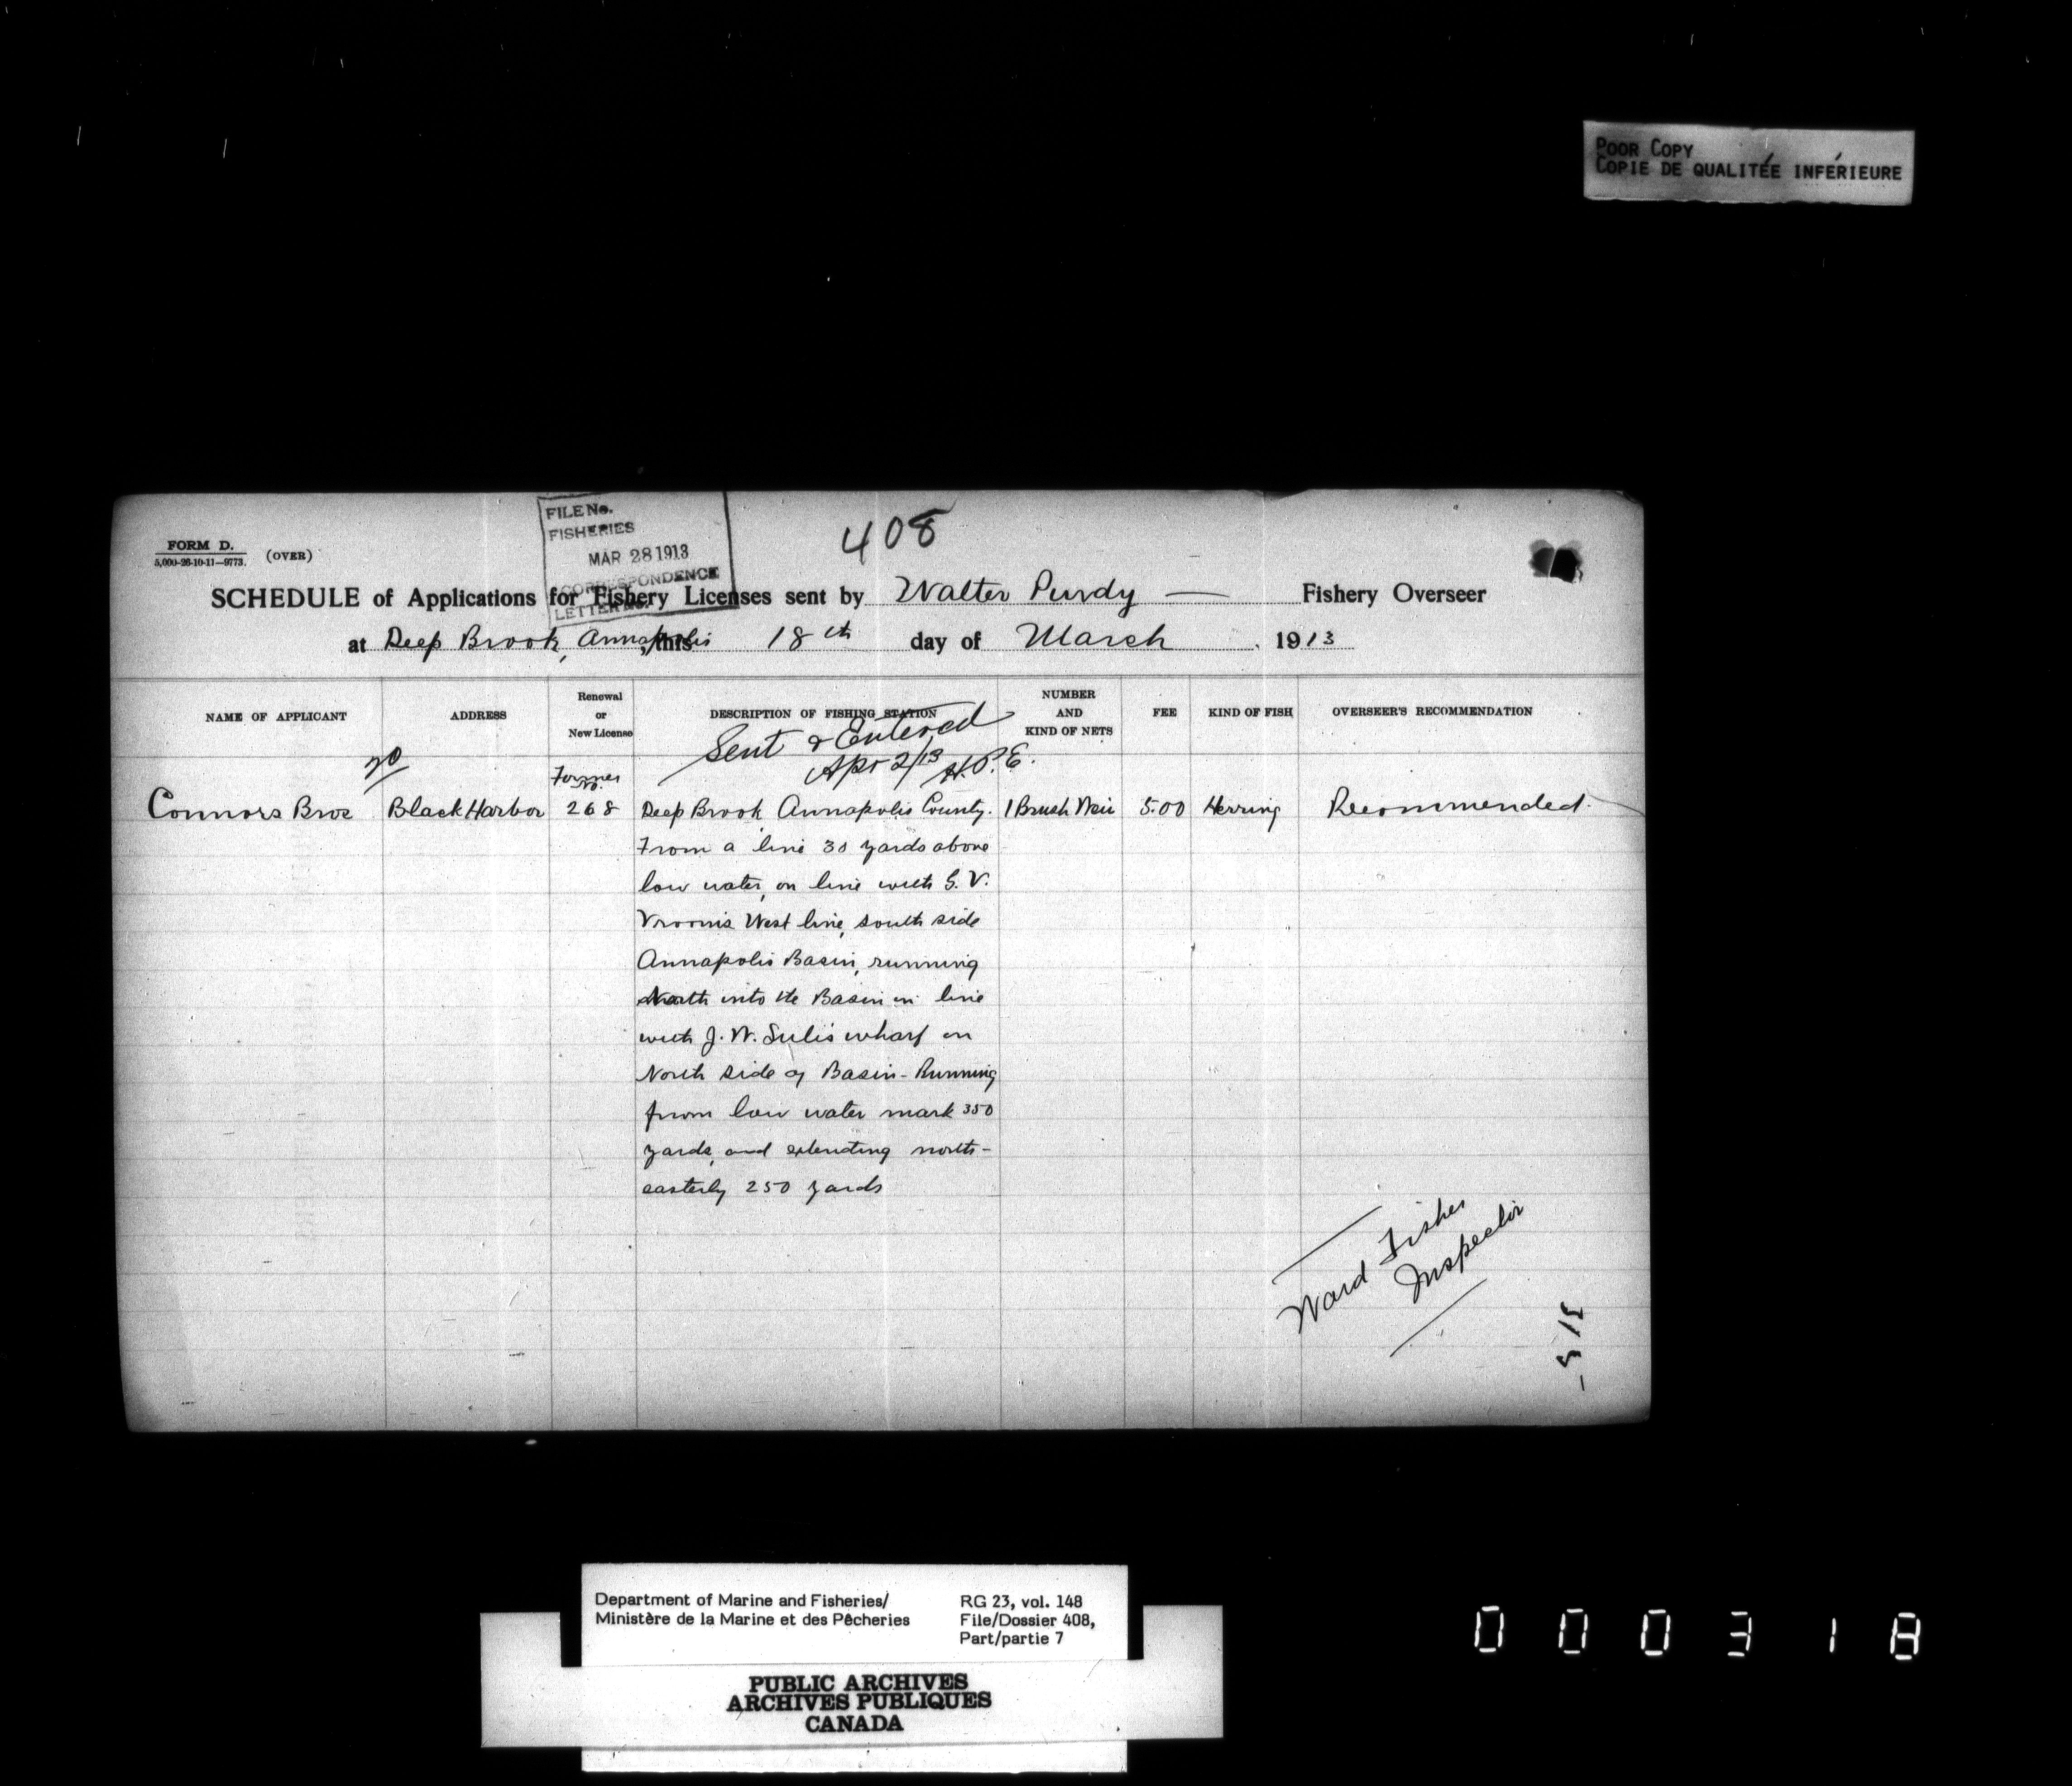 POOR COPY
COPIE DE QUALITÉE INFÉRIEURE
FILE No.
FISHERIES
MAR 28 1913
CORRESPONDENCE
LETTER No.
408
FORM D. (OVER)
5,000-26-10-11—9773.
SCHEDULE of Applications for Fishery Licenses sent by Walter Purdy — Fishery Overseer
at Deep Brook, Annapolis, this 18th day of March 1913
NAME OF APPLICANT ADDRESS Renewal or New License DESCRIPTION OF FISHING STATION NUMBER AND KIND OF NETS FEE KIND OF FISH OVERSEER'S RECOMMENDATION
Sent & Entered
Apr 2/13 H.P.E.
20
Former No.
Connors Bros Black Harbor 268 Deep Brook Annapolis County. 1 Brush Weir 5.00 Herring Recommended.
From a line 30 yards above
low water, on line with S. V.
Vroom's West line, south side
Annapolis Basin, running
North into the Basin in line
with J. W. Sulis wharf on
North side of Basin - Running
from low water mark 350
yards, and extending north-
easterly 250 yards
Ward Fisher
Inspector
315-
Department of Marine and Fisheries/
Ministère de la Marine et des Pêcheries
RG 23, vol. 148
File/Dossier 408,
Part/partie 7
PUBLIC ARCHIVES
ARCHIVES PUBLIQUES
CANADA
000318